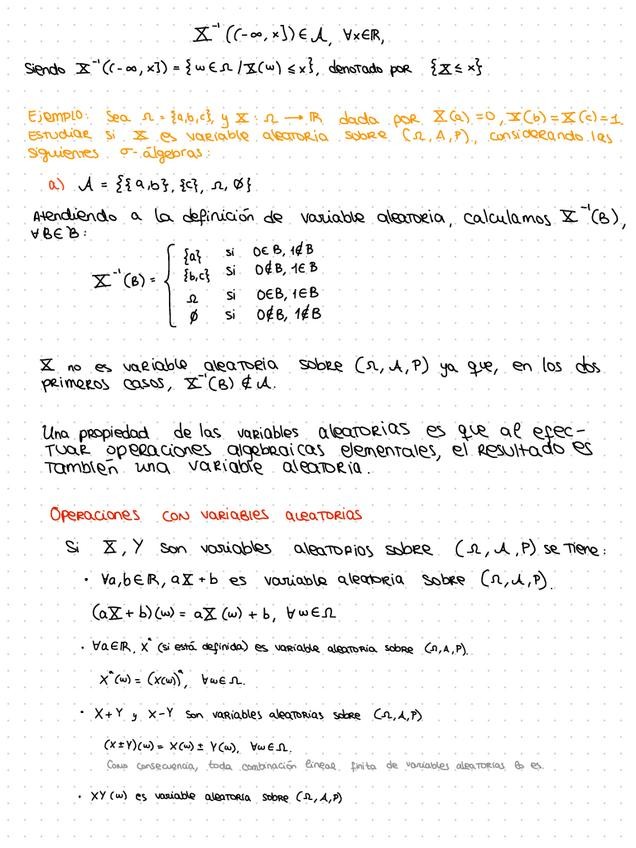 X⁻¹((-∞, x]) ∈ A, ∀x∈ℝ,
siendo X⁻¹((-∞, x]) = {ω∈Ω / X(ω) ≤ x}, denotado por {X ≤ x}
Ejemplo: Sea Ω = {a,b,c}, y X: Ω → ℝ dada por X(a) = 0, X(b) = X(c) = 1.
Estudiar si X es variable aleatoria sobre (Ω, A, P), considerando las
siguientes σ-álgebras:
a) A = {{a,b}, {c}, Ω, Ø}
Atendiendo a la definición de variable aleatoria, calculamos X⁻¹(B),
∀B∈B:
{a} si 0∈B, 1∉B
{b,c} si 0∉B, 1∈B
X⁻¹(B) =
Ω si 0∈B, 1∈B
Ø si 0∉B, 1∉B
X no es variable aleatoria sobre (Ω, A, P) ya que, en los dos
primeros casos, X⁻¹(B) ∉ A.
Una propiedad de las variables aleatorias es que al efec-
tuar operaciones algebraicas elementales, el resultado es
también una variable aleatoria.
Operaciones con variables aleatorias
Si X, Y son variables aleatorios sobre (Ω, A, P) se tiene:
· ∀a,b∈ℝ, aX+b es variable aleatoria sobre (Ω, A, P).
(aX+b)(ω) = aX(ω) + b, ∀ω∈Ω
· ∀a∈ℝ, Xᵃ (si está definida) es variable aleatoria sobre (Ω, A, P).
Xᵃ(ω) = (X(ω))ᵃ, ∀ω∈Ω.
· X+Y y X-Y son variables aleatorias sobre (Ω, A, P)
(X±Y)(ω) = X(ω) ± Y(ω), ∀ω∈Ω.
Como consecuencia, toda combinación lineal finita de variables aleatorias lo es.
· XY(ω) es variable aleatoria sobre (Ω, A, P)